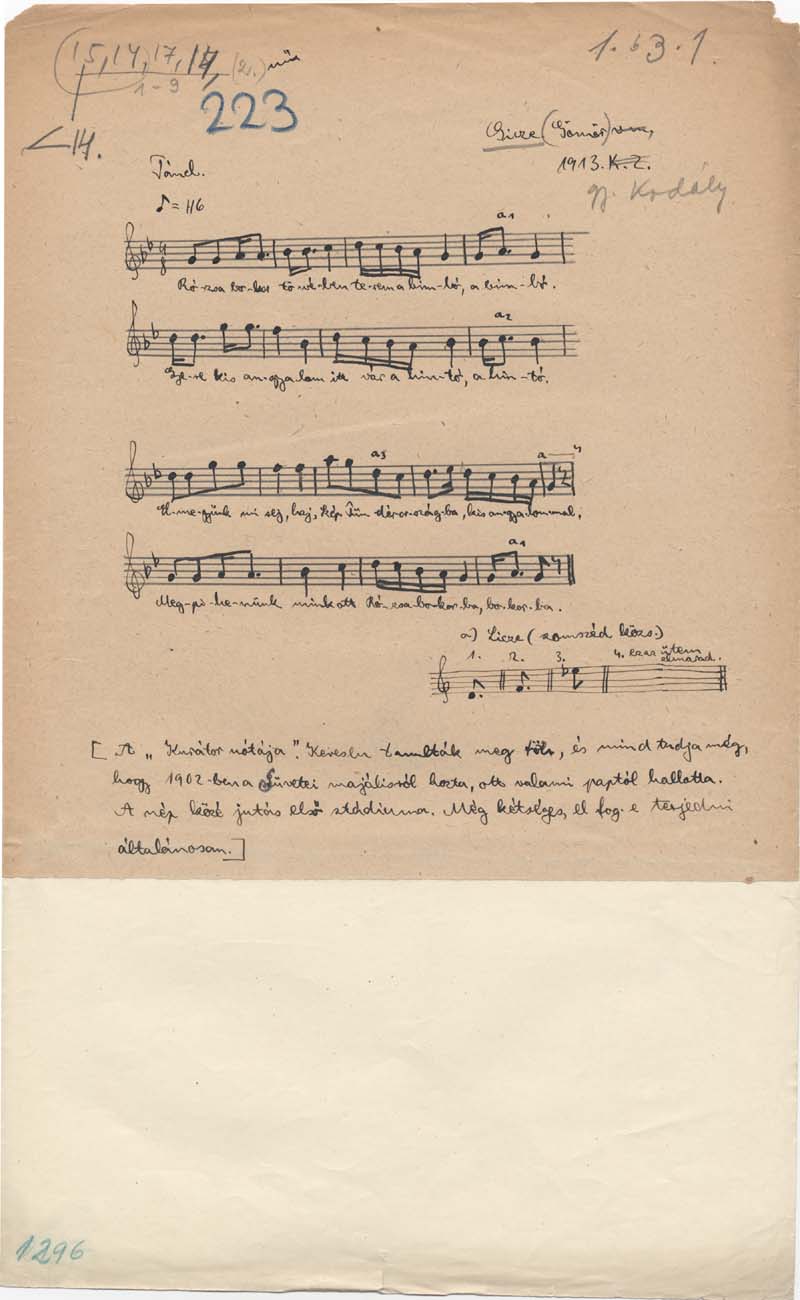 15, 14, 17, 14, (2.)
1-9
223
1.63.1.
14.
Gicze (Gömör)
1913. K. Z.
gy. Kodály
Táncl.
♪= 116
a1
Ró-zsa bo-kor tö-vé-ben te-rem a bim-bó, a bim-bó.
a2
Gye-re kis an-gya-lom itt vár a hin-tó, a hin-tó.
a3 a
El-me-gyünk mi sej, haj, szép Tün-dér-or-szág-ba, kis an-gya-lom-mal,
a4
Meg-pi-he-nünk mink ott Ró-zsa-bo-kor-ba, bo-kor-ba.
a) Licze (szomszéd közs.)
1. 2. 3. 4. ezas ütem elmarad.
[A „Kurátor nótája". Kevesen tanulták meg tőle, és mind tudja még,
hogy 1902-ben a Füvetei majálisról hozta, ott valami paptól hallotta.
A nép közé jutás első stádiuma. Még kétséges, el fog-e terjedni
általánosan.]
1296